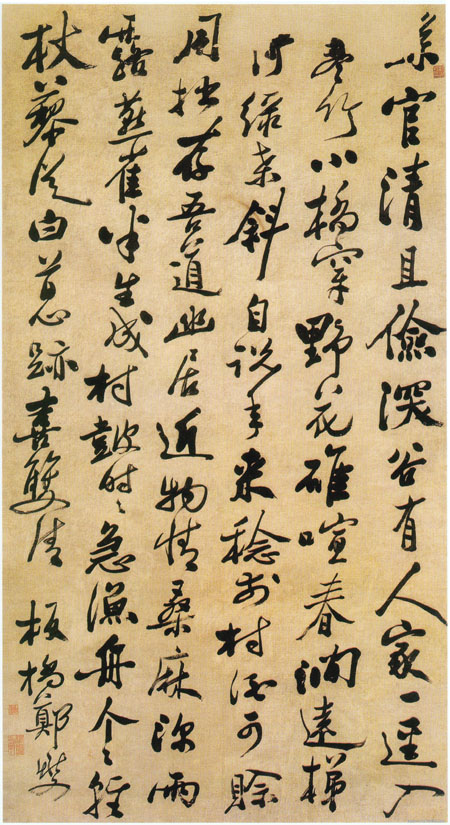 縣官清且儉深谷有人家一逕入
寒竹小橋穿野花碓喧春澗遠梯
倚綠桑斜自說年來稔前村酒可賒
用拙存吾道幽居近物情桑麻深雨
露燕雀半生成村鼓時々急漁舟个々輕
杖藜從白首心跡喜雙清 板橋鄭燮